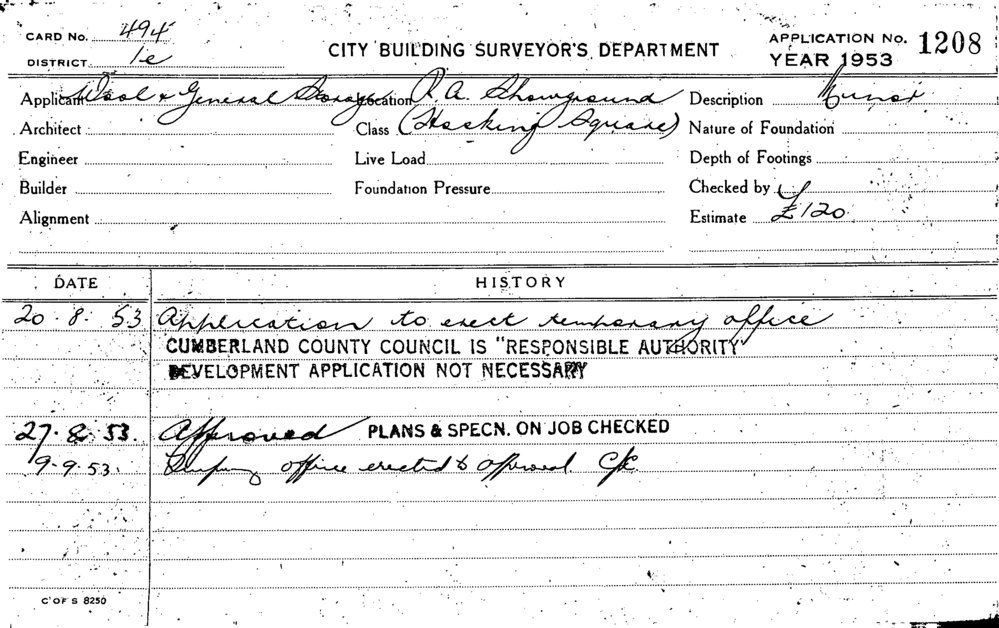 CARD No. 494
DISTRICT 1e
CITY BUILDING SURVEYOR'S DEPARTMENT
APPLICATION No. 1208
YEAR 1953
Applicant Wool & General Storage Location R. A. Showground Description Minor
Architect Class (Hosking Square) Nature of Foundation
Engineer Live Load Depth of Footings
Builder Foundation Pressure Checked by
Alignment Estimate £120
DATE HISTORY
20.8.53 Application to erect temporary office
CUMBERLAND COUNTY COUNCIL IS "RESPONSIBLE AUTHORITY"
DEVELOPMENT APPLICATION NOT NECESSARY
27.8.53. Approved PLANS & SPECN. ON JOB CHECKED
9.9.53. office erected to approval
C OF S 8250